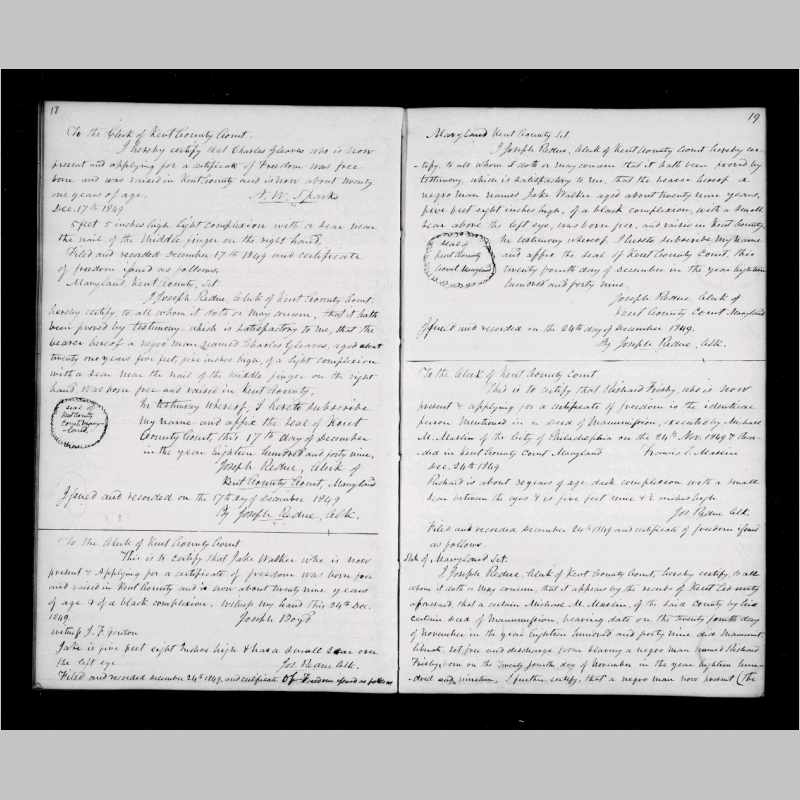 18
To the Clerk of Kent County Court.
I hereby certify that Charles Gleaves who is now
present and applying for a certificate of Freedom was free
born and was raised in Kent County and is now about twenty
one years of age.
N. W. Sparks
Dec. 17th 1849
5 feet 5 inches high light complexion with a scar near
the nail of the middle finger on the right hand,
Filed and recorded December 17th 1849 and certificate
of freedom issued as follows.
Maryland, Kent County, Sct.
I Joseph Redue, Clerk of Kent County Court
hereby certify, to all whom it doth or may concern, that it hath
been proved by testimony, which is satisfactory to me, that the
bearer hereof a negro man, named Charles Gleaves, aged about
twenty one years five feet, five inches high, of a light complexion
with a scar near the nail of the middle finger on the right
hand, was born free and raised in Kent County.
seal of
Kent County
Court Mary-
land.
In testimony whereof, I hereto subscribe
my name and affix the seal of Kent
County Court, this 17th day of December
in the year eighteen hundred and forty nine,
Joseph Redue, Clerk of
Kent County Court, Maryland
Issued and recorded on the 17th day of December 1849
By Joseph Redue, Clk.
To the Clerk of Kent County Court
This is to certify that Jake Walker who is now
present & applying for a certificate of freedom was born free
and raised in Kent County and is now about twenty nine years
of age & of a black complexion. Witness my hand this 24th Dec.
1849.
Joseph Boyd
Witness J. F.
Jake is five feet eight Inches high & has a small scar over
the left eye
Jos Redue Clk.
Filed and recorded December 24th 1849, and certificate of Freedom issued as follows
19
Maryland Kent County Sct
I Joseph Redue, Clerk of Kent County Court hereby cer-
tify, to all whom it doth or may concern that it hath been proved by
testimony, which is satisfactory to me, that the bearer hereof a
negro man named Jake Walker aged about twenty nine years,
five feet eight inches high, of a black complexion, with a small
scar above the left eye, was born free, and raises in Kent County
Seal of
Kent County
Court Maryland
In testimony whereof I hereto subscribe my name
and affix the seal of Kent County Court, this
twenty fourth day of December in the year eighteen
hundred and forty nine.
Joseph Redue Clerk of
Kent County Court Maryland
Issued and recorded on the 24th day of December 1849.
By Joseph Redue, Clk.
To the Clerk of Kent County Court
This is to certify that Richard Frisby, who is now
present & applying for a certificate of freedom is the identical
person mentioned in a deed of Manumission, executed by Michael
M. Maslin of the City of Philadelphia on the 24th Nov. 1849 &
ded in Kent County Court Maryland
Francis C. Maslin
Dec. 24th 1849
Richard is about 30 years of age dark complexion with a small
scar between the eyes & is five feet nine & ½ inches high.
Jos Redue Clk.
Filed and recorded December 24th 1849 and certificate of freedom issued
as follows
State of Maryland Sct.
I Joseph Redue, Clerk of Kent County Court, hereby certify, to all
whom it doth or may concern, that it appears by the records of Kent County
aforesaid, that a certain Michael M. Maslin, of the said County by his
certain deed of manumission, bearing date on the twenty fourth day
of November in the year Eighteen hundred and forty nine did Manumit,
liberate, set free and discharge from slavery a negro man named Richard
Frisby, born on the Twenty fourth day of November in the year Eighteen hun-
dred and nineteen, I further certify, that a negro man now present (the